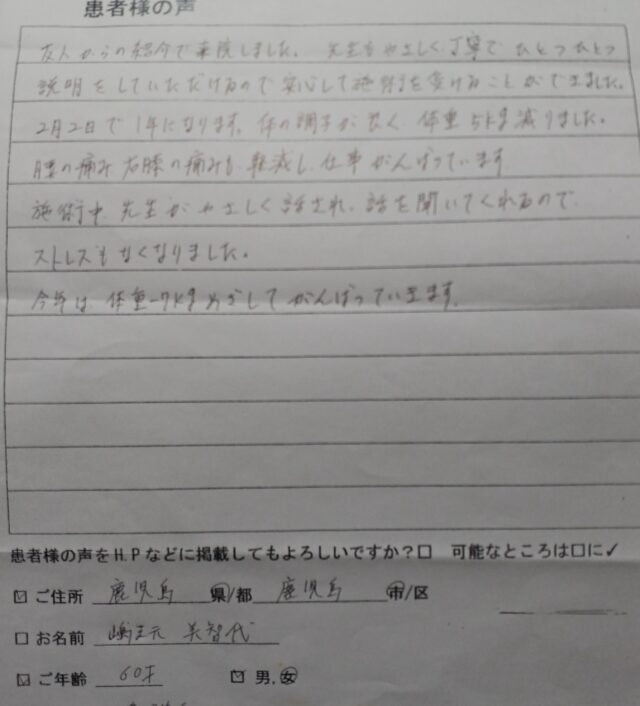 患者様の声
友人からの紹介で来院しました。 先生もやさしく丁寧でひとつひとつ
説明をしていただけるので安心して施術を受けることができました。
2月2日で1年になります。体の調子が良く、体重5kg減りました。
腰の痛み 右膝の痛みも、軽減し、仕事がんばっています。
施術中、先生がやさしく話され、話を聞いてくれるので、
ストレスもなくなりました。
今年は、体重-7kgめざしてがんばっていきます。
患者様の声をHPなどに掲載してもよろしいですか?□ 可能なところは□に✓
☑ ご住所 鹿児島 県/都 鹿児島 市/区
□ お名前 元 美智代
☑ ご年齢 60才 ☑ 男.女